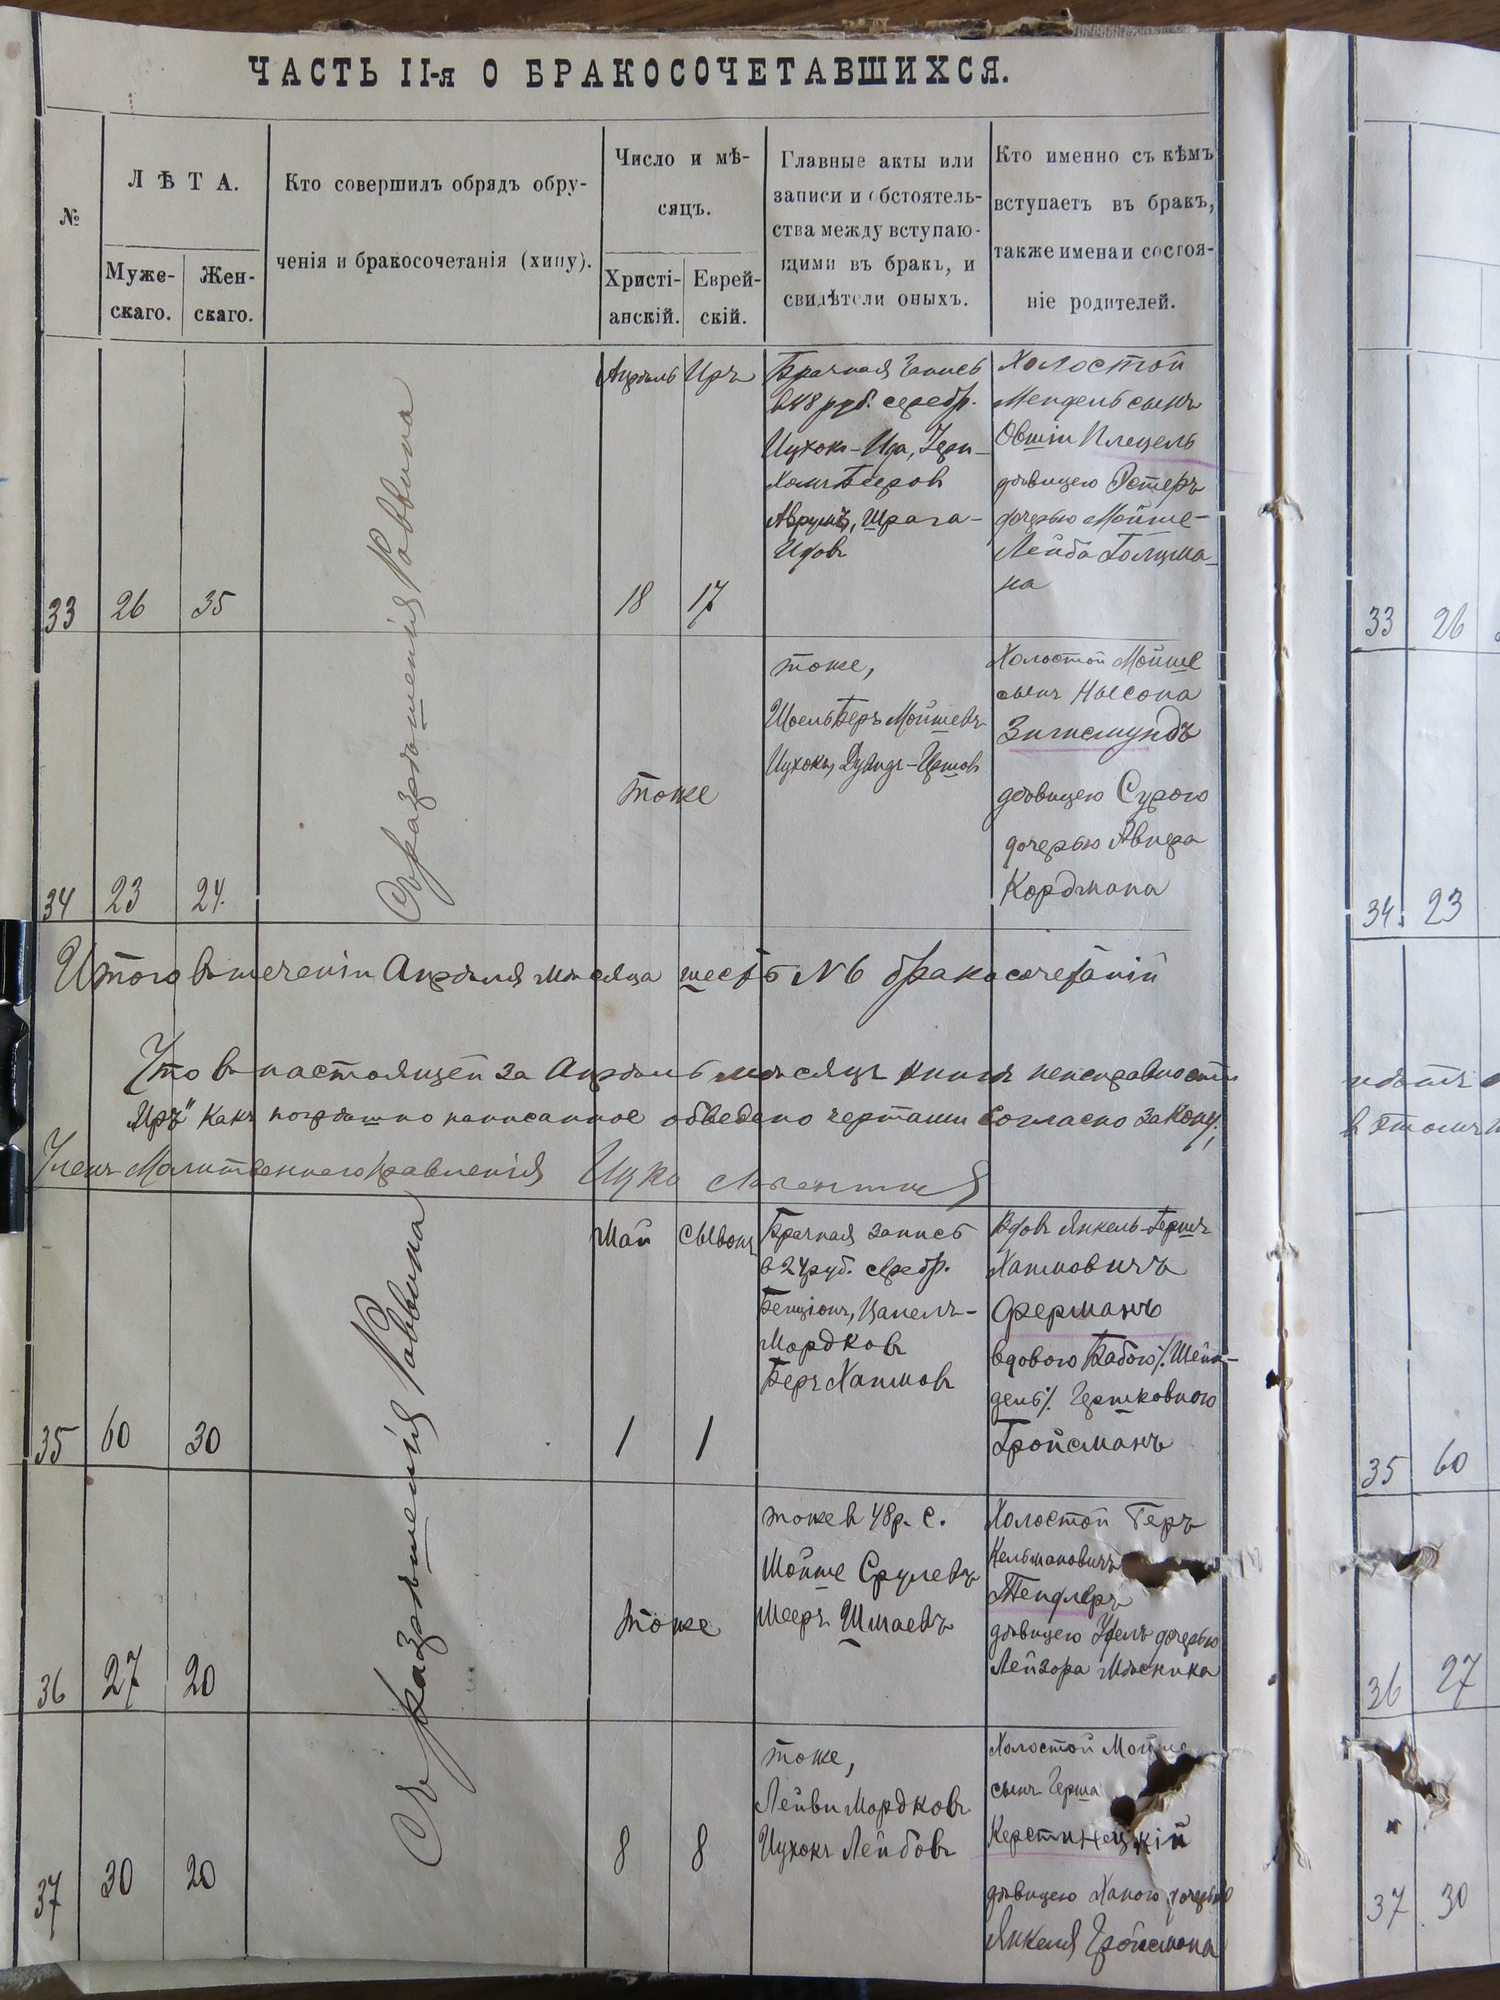 ЧАСТЬ II-я О БРАКОСОЧЕТАВШИХСЯ.
№
ЛѢТА.
Муже-
скаго.
Жен-
скаго.
Кто совершилъ обрядъ обру-
ченія и бракосочетанія (хипу).
Число и мѣ-
сяцъ.
Христі-
анскій.
Еврей-
скій.
Главные акты или
записи и обстоятель-
ства между вступаю-
щими въ бракъ, и
свидѣтели оныхъ.
Кто именно съ кѣмъ
вступаетъ въ бракъ,
также имена и состоя-
ніе родителей.
33
26
35
Съ разрѣшенія Раввина
Апрѣль
18
Иръ
17
Брачная запись
в 48 руб. серебр.
Ицхокъ-Ида,
Беров
Аврумъ, Шрага-
Идовъ
Холостой
Мендель сынъ
Овшіи Плецель
дѣвицею Эстеръ
дочерью Мойше-
Лейба Голцма-
на
34
23
24.
тоже
тоже,
Шоель Беръ Мойшевъ
Ицхокъ, Дувидъ-
Холостой Мойше
сынъ Нысона
Зигисмундъ
дѣвицею Сурою
дочерью Авнера
Кордмана
Итого в теченіи Апрѣля мѣсяца шесть N 6 бракосочетаній
Что в настоящей за Апрѣль мѣсяцъ книгѣ неисправности
Иръ" какъ погрѣшно написанное обведено чертами согласно закону,
Членъ Молитвеннаго правленія Ицко
35
60
30
Съ разрѣшенія Раввина
Май
1
Сывонъ
1
Брачная запись
в 24 руб. серебр.
Бенціонъ, Цапель-
Мордковъ
Беръ Хаимовъ
Вдовъ Янкель-Гершъ
Хаимовичъ
Ферманъ
вдовою Бабою /. Шейн-
дель /. Гершковною
Гройсманъ
36
27
20
тоже
тоже в 48 р. с.
Мойше Срулевъ
Мееръ Шмаевъ
Холостой Беръ
Кельмановичъ
Теплеръ
дѣвицею дочерью
Лейзора Мясника
37
30
20
8
8
тоже,
Лейви Мордковъ
Ицхокъ Лейбовъ
Холостой Мойше
сынъ Герша
Керстинецкій
дѣвицею Ханою дочерью
Янкеля Гройсмана
33
26
34.
23
35
60
36
27
37
30